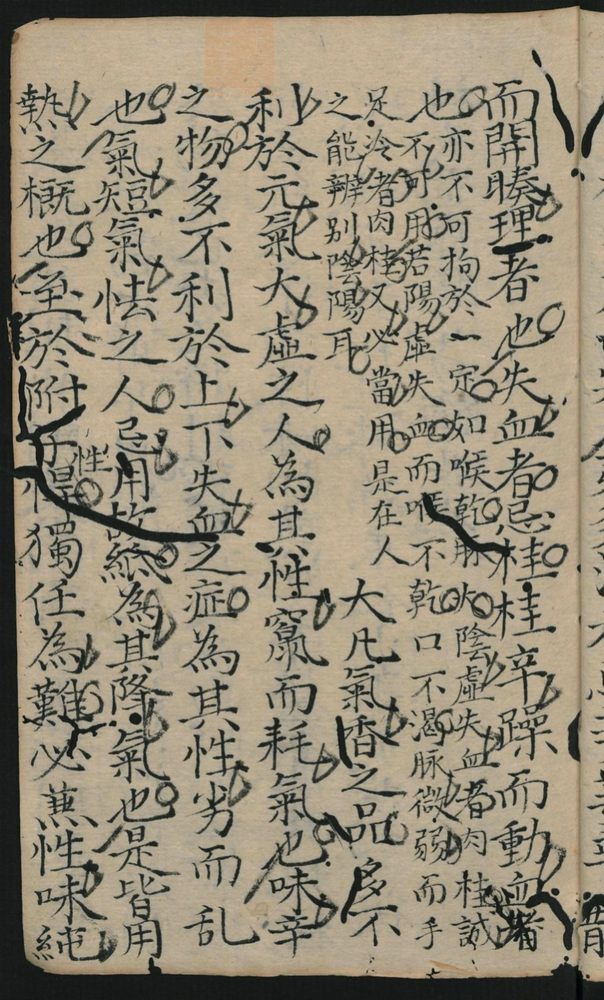 而開腠理者也失血者忌桂桂辛躁而動血者
也亦不可拘於一定如喉乾脉火陰虛失血者肉桂誠
不可用若陽虛失血而喉不乾口不渴脉微弱而手
足冷者肉桂又必當用是在人
之能辨别陰陽耳
大凡氣香之品多不
利於元氣大虛之人為其性竄而耗氣也味辛
之物多不利於上下失血之症為其性劣而乱
也氣短氣怯之人忌用故紙為其降氣也是皆用
熱之概也至於附子性悍獨任為難必蒸性味純